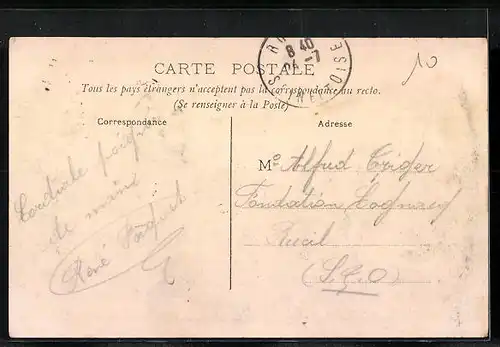 10
8 40
24 -7
CARTE POSTALE
Tous les pays étrangers n'acceptent pas la correspondance au recto.
(Se renseigner à la Poste)
Correspondance
Adresse
Cordiale poignée
de main
René
Mr Alfred Criger
Fondation Cognacq
Rueil
(S.&O)